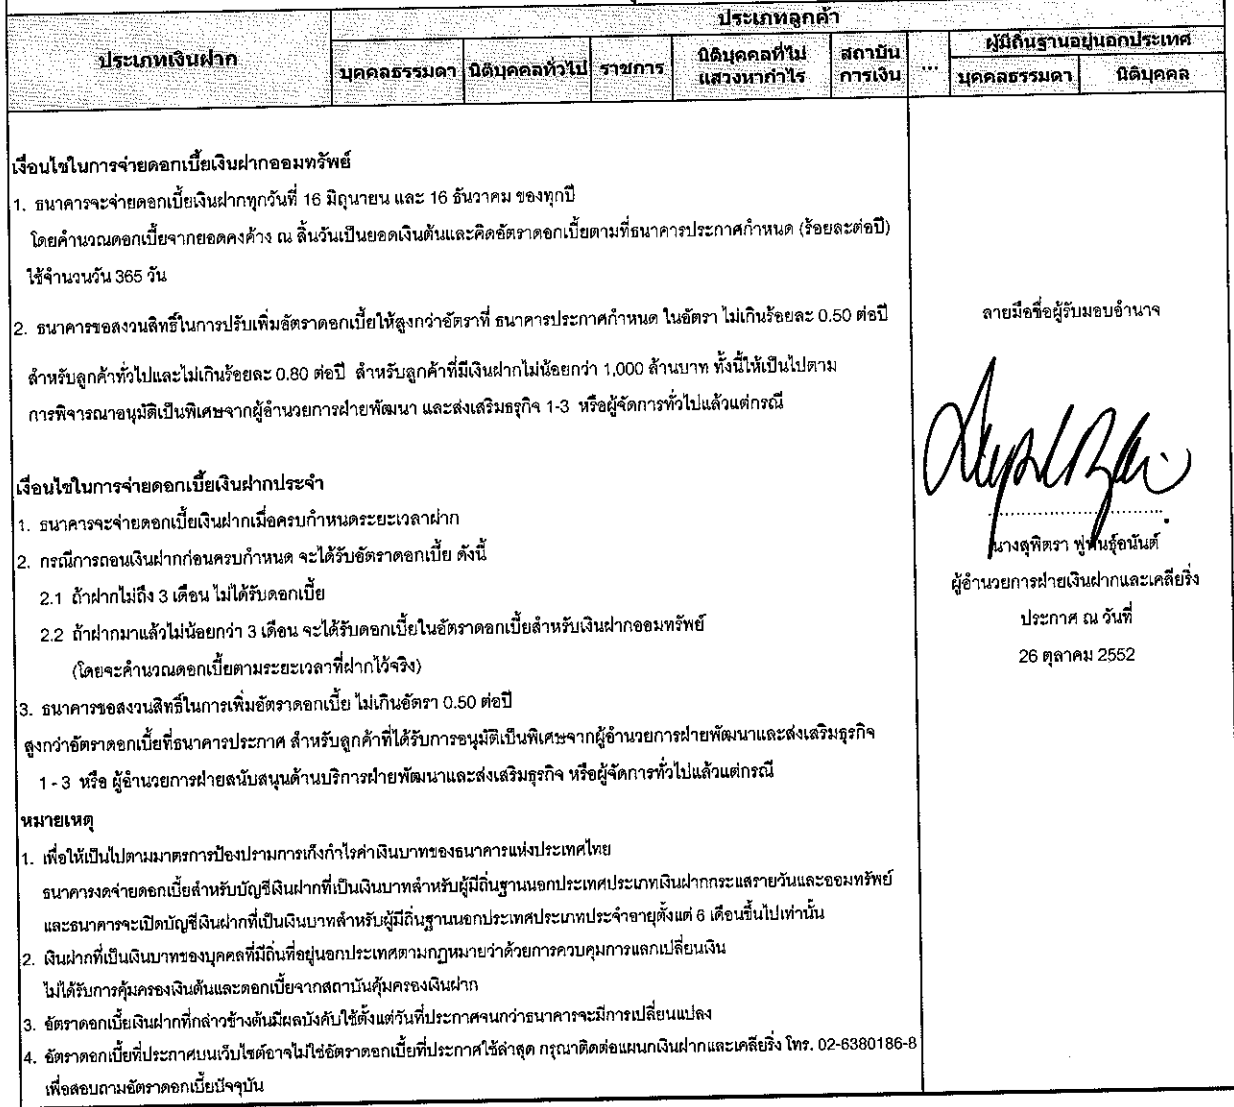 ประเภทลูกค้า
ประเภทเงินฝาก
บุคคลธรรมดา นิติบุคคลทั่วไป ราชการ นิติบุคคลที่ไม่แสวงหากำไร สถาบันการเงิน ... ผู้มีถิ่นฐานอยู่นอกประเทศ
บุคคลธรรมดา นิติบุคคล
เงื่อนไขในการจ่ายดอกเบี้ยเงินฝากออมทรัพย์
1. ธนาคารจะจ่ายดอกเบี้ยเงินฝากทุกวันที่ 16 มิถุนายน และ 16 ธันวาคม ของทุกปี
โดยคำนวณดอกเบี้ยจากยอดคงค้าง ณ สิ้นวันเป็นยอดเงินต้นและคิดอัตราดอกเบี้ยตามที่ธนาคารประกาศกำหนด (ร้อยละต่อปี)
ใช้จำนวนวัน 365 วัน
2. ธนาคารขอสงวนสิทธิ์ในการปรับเพิ่มอัตราดอกเบี้ยให้สูงกว่าอัตราที่ ธนาคารประกาศกำหนด ในอัตรา ไม่เกินร้อยละ 0.50 ต่อปี
สำหรับลูกค้าทั่วไปและไม่เกินร้อยละ 0.80 ต่อปี สำหรับลูกค้าที่มีเงินฝากไม่น้อยกว่า 1,000 ล้านบาท ทั้งนี้ให้เป็นไปตาม
การพิจารณาอนุมัติเป็นพิเศษจากผู้อำนวยการฝ่ายพัฒนา และส่งเสริมธรุกิจ 1-3 หรือผู้จัดการทั่วไปแล้วแต่กรณี
เงื่อนไขในการจ่ายดอกเบี้ยเงินฝากประจำ
1. ธนาคารจะจ่ายดอกเบี้ยเงินฝากเมื่อครบกำหนดระยะเวลาฝาก
2. กรณีการถอนเงินฝากก่อนครบกำหนด จะได้รับอัตราดอกเบี้ย ดังนี้
2.1 ถ้าฝากไม่ถึง 3 เดือน ไม่ได้รับดอกเบี้ย
2.2 ถ้าฝากมาแล้วไม่น้อยกว่า 3 เดือน จะได้รับดอกเบี้ยในอัตราดอกเบี้ยสำหรับเงินฝากออมทรัพย์
(โดยจะคำนวณดอกเบี้ยตามระยะเวลาที่ฝากไว้จริง)
3. ธนาคารขอสงวนสิทธิ์ในการเพิ่มอัตราดอกเบี้ย ไม่เกินอัตรา 0.50 ต่อปี
สูงกว่าอัตราดอกเบี้ยที่ธนาคารประกาศ สำหรับลูกค้าที่ได้รับการอนุมัติเป็นพิเศษจากผู้อำนวยการฝ่ายพัฒนาและส่งเสริมธุรกิจ
1 - 3 หรือ ผู้อำนวยการฝ่ายสนับสนุนด้านบริการฝ่ายพัฒนาและส่งเสริมธุรกิจ หรือผู้จัดการทั่วไปแล้วแต่กรณี
หมายเหตุ
1. เพื่อให้เป็นไปตามมาตรการป้องปรามการเก็งกำไรค่าเงินบาทของธนาคารแห่งประเทศไทย
ธนาคารงดจ่ายดอกเบี้ยสำหรับบัญชีเงินฝากที่เป็นเงินบาทสำหรับผู้มีถิ่นฐานนอกประเทศประเภทเงินฝากกระแสรายวันและออมทรัพย์
และธนาคารจะเปิดบัญชีเงินฝากที่เป็นเงินบาทสำหรับผู้มีถิ่นฐานนอกประเทศประเภทประจำอายุตั้งแต่ 6 เดือนขึ้นไปเท่านั้น
2. เงินฝากที่เป็นเงินบาทของบุคคลที่มีถิ่นที่อยู่นอกประเทศตามกฎหมายว่าด้วยการควบคุมการแลกเปลี่ยนเงิน
ไม่ได้รับการคุ้มครองเงินต้นและดอกเบี้ยจากสถาบันคุ้มครองเงินฝาก
3. อัตราดอกเบี้ยเงินฝากที่กล่าวข้างต้นมีผลบังคับใช้ตั้งแต่วันที่ประกาศจนกว่าธนาคารจะมีการเปลี่ยนแปลง
4. อัตราดอกเบี้ยที่ประกาศบนเว็บไซต์อาจไม่ใช่อัตราดอกเบี้ยที่ประกาศใช้ล่าสุด กรุณาติดต่อแผนกเงินฝากและเคลียริ่ง โทร. 02-6380186-8
เพื่อสอบถามอัตราดอกเบี้ยปัจจุบัน
ลายมือชื่อผู้รับมอบอำนาจ
นางสุพิตรา พู่พันธุ์อนันต์
ผู้อำนวยการฝ่ายเงินฝากและเคลียริ่ง
ประกาศ ณ วันที่
26 ตุลาคม 2552